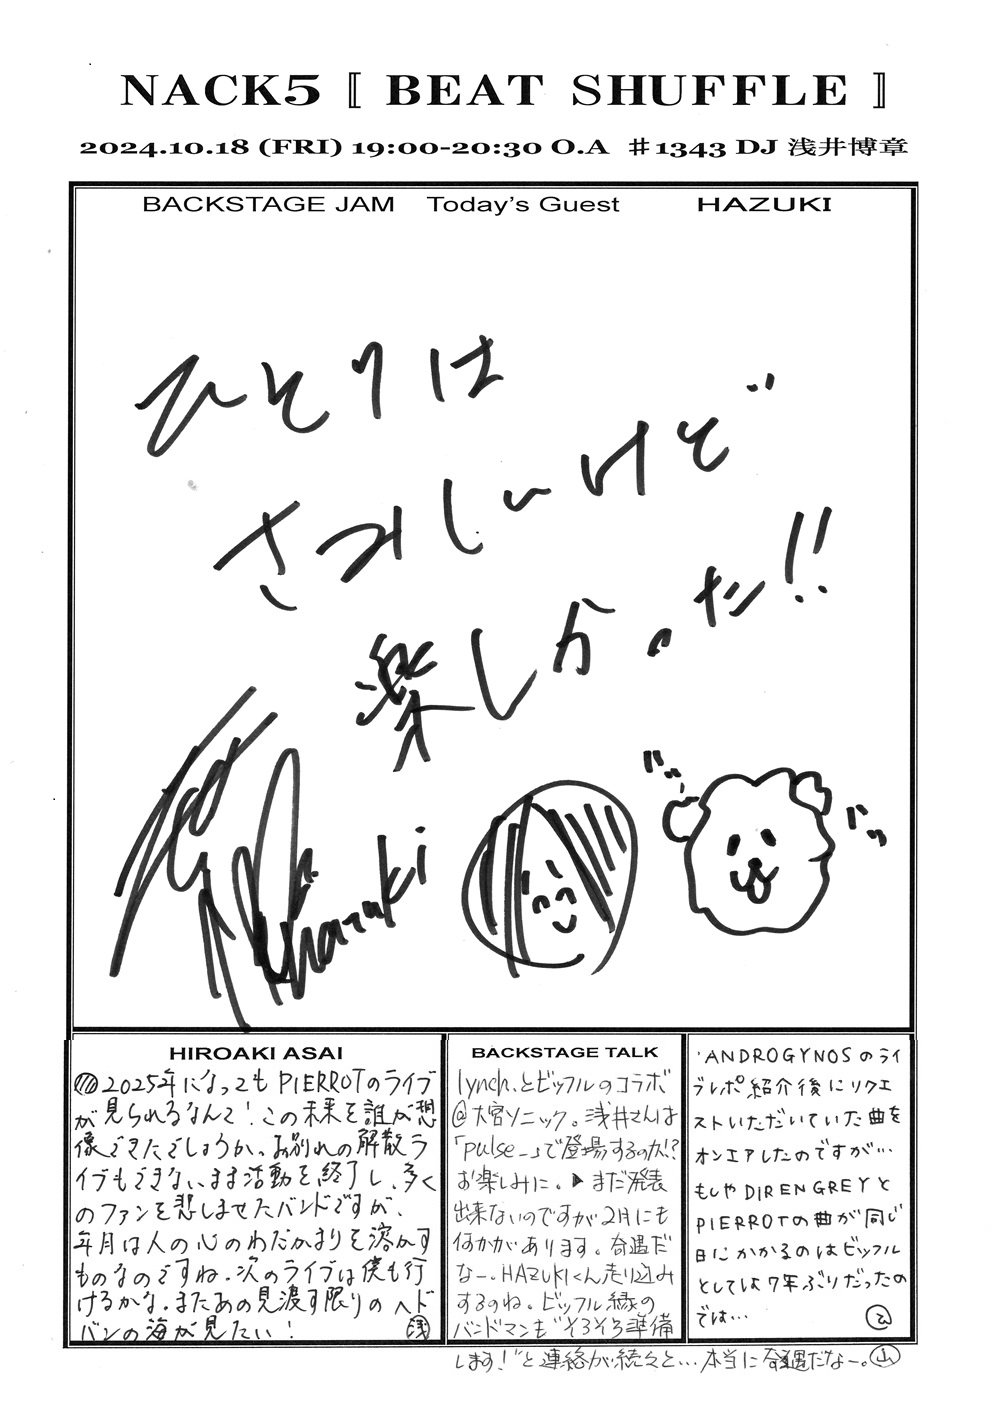 NACK5 〚 BEAT SHUFFLE 〛
2024.10.18 (FRI) 19:00-20:30 O.A ♯1343 DJ 浅井博章
BACKSTAGE JAM Today's Guest HAZUKI
ひとりは
さみしいけど
楽しかった!!
hazuki
HIROAKI ASAI
2025年になってもPIERROTのライブ
が見られるなんて!この未来を誰が想
像できたでしょうか。お別れの解散ラ
イブもできないまま活動を終了し、多く
のファンを悲しませたバンドですが、
年月は人の心のわだかまりを溶かす
ものなのですね。次のライブは僕も行
けるかな。またあの見渡す限りのヘド
バンの海が見たい! 浅
BACKSTAGE TALK
lynch.とビッフルのコラボ
@大宮ソニック。浅井さんは
「pulse_」で登場するのか!?
お楽しみに。▶まだ発表
出来ないのですが2月にも
何かがあります。奇遇だ
なー。HAZUKIくん走り込み
するのね。ビッフル縁の
バンドマンも"そろそろ準備
します!"と連絡が続々と…本当に奇遇だなー。山
'ANDROGYNOSのライ
ブレポ紹介後にリクエ
ストいただいていた曲を
オンエアしたのですが…
もしやDIR EN GREYと
PIERROTの曲が同じ
日にかかるのはビッフル
としては7年ぶりだったの
では…